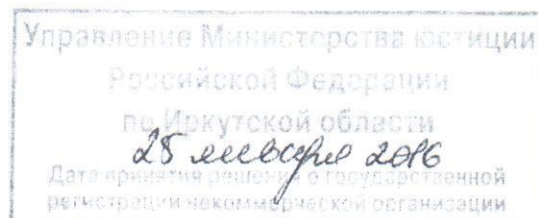 Управление Министерства юстиции
Российской Федерации
по Иркутской области
25 января 2016
Дата принятия решения о государственной
регистрации некоммерческой организации